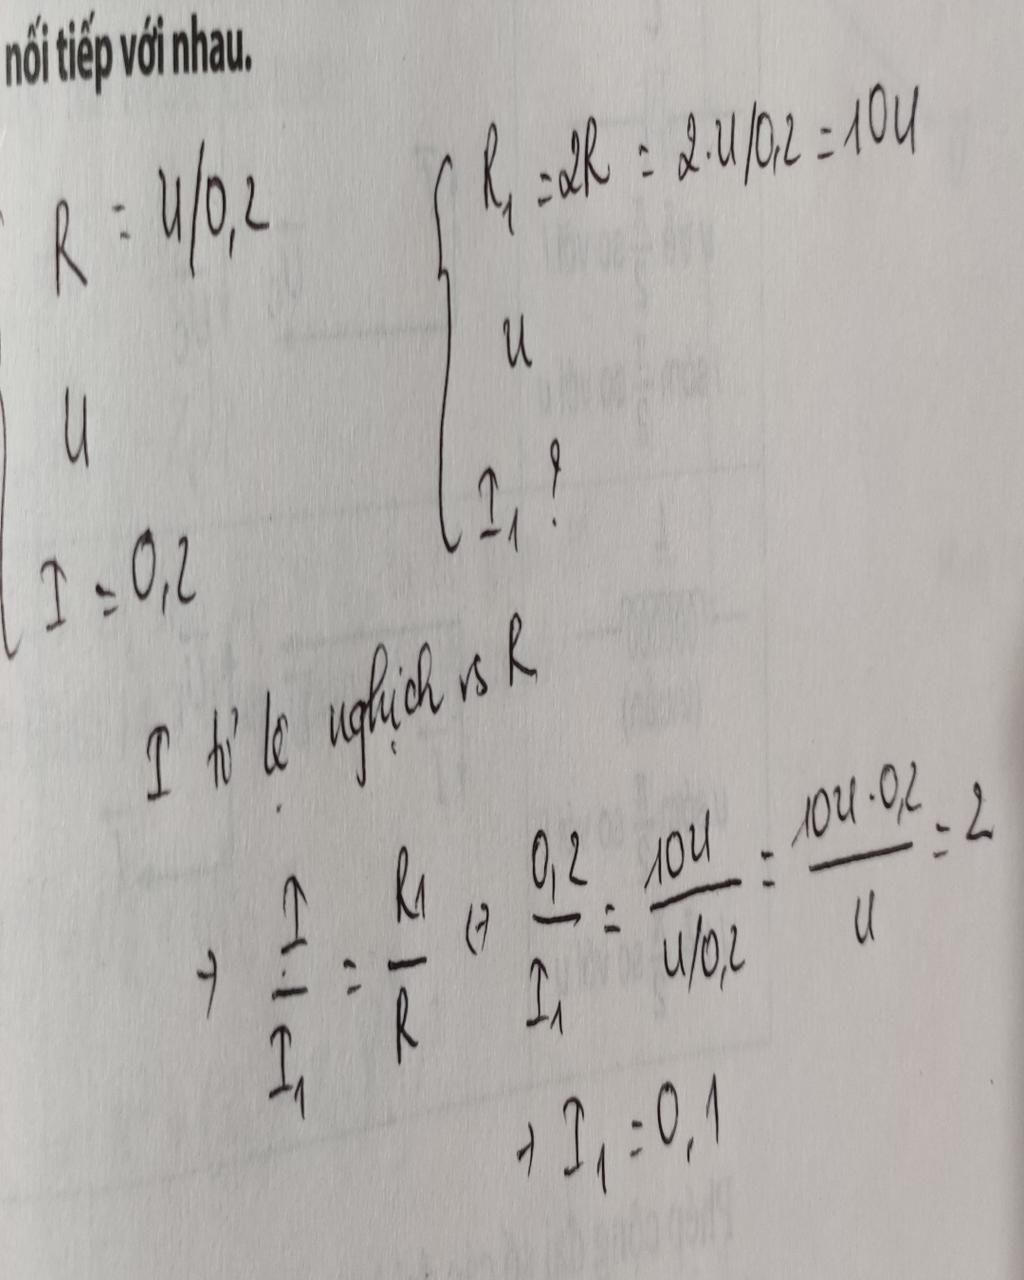 nối tiếp với nhau.
R = U/0,2
U
I = 0,2
R1 = 2R = 2.U/0,2 = 10U
U
I1 ?
I tỉ lệ nghịch vs R
→ I/I1 = R1/R ↔ 0,2/I1 = 10U/U/0,2 = 10U.0,2/U = 2
→ I1 = 0,1